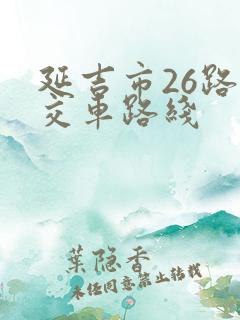 延吉市26路
交车路线
葉隐香
未经同意禁止转载